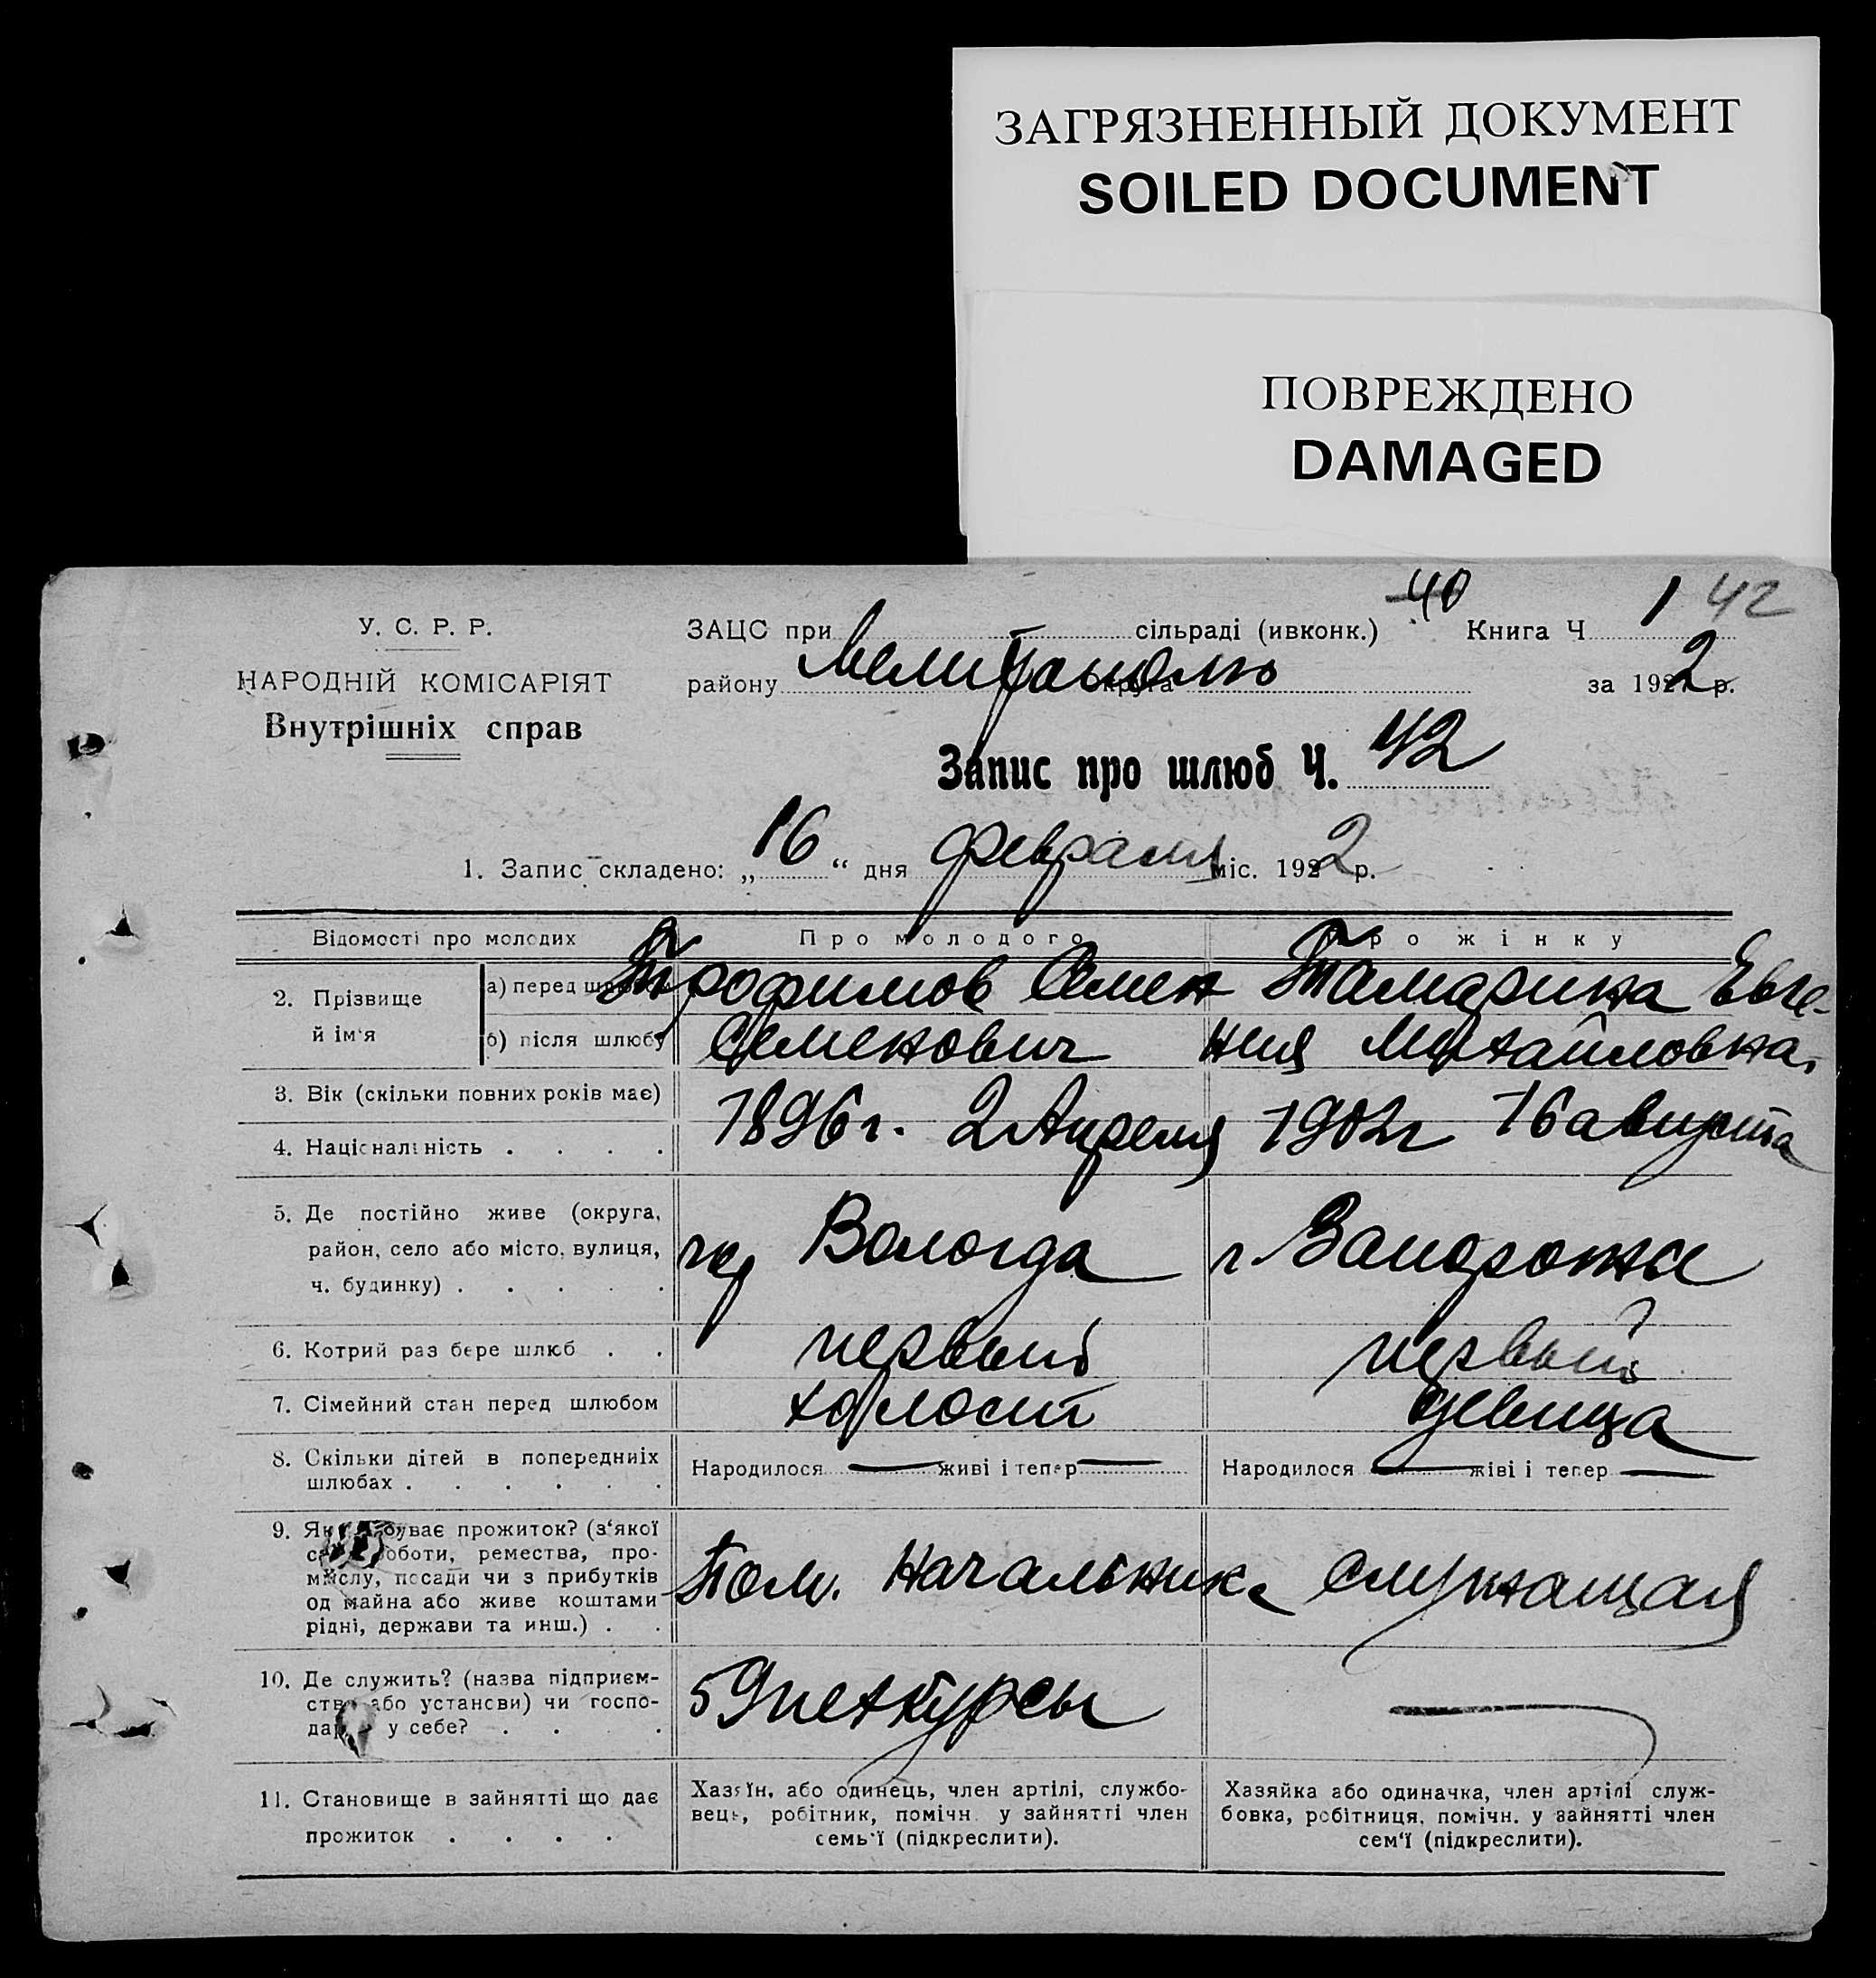 ЗАГРЯЗНЕННЫЙ ДОКУМЕНТ
SOILED DOCUMENT
ПОВРЕЖДЕНО
DAMAGED
У. С. Р. Р.
НАРОДНІЙ КОМІСАРІЯТ
Внутрішніх справ
ЗАЦС при сільраді (ивконк.) 40 Книга Ч 1 42
району Мелитополь округа за 1922 р.
Запис про шлюб Ч. 42
1. Запис складено: „16“ дня февраля міс. 1922 р.
Відомості про молодих Про молодого Про жінку
2. Прізвище й ім'я а) перед шлюбом Трофимов Семен Тамарина Евге-
б) після шлюбу Семенович ния Михайловна
3. Вік (скільки повних років має)
4. Національність . . . . 1896 г. 2 Апреля 1902 г 16 августа
5. Де постійно живе (округа,
район, село або місто, вулиця, гор Вологда г. Запорожье
ч. будинку) . . . . .
6. Котрий раз бере шлюб . . первый первый
7. Сімейний стан перед шлюбом холост девица
8. Скільки дітей в попередніх Народилося — живі і тепер — Народилося — жіві і тепер —
шлюбах . . . . . .
9. Як буває прожиток? (з'якої
роботи, ремества, про-
мислу, посади чи з прибутків Пом. Начальника служащая
од майна або живе коштами
рідні, держави та инш.) . .
10. Де служить? (назва підприєм-
ства або установи) чи госпо- 59 пехкурсы —
дар у себе? . . .
11. Становище в зайнятті що дає
прожиток . . . .
Хазяїн, або одинець, член артілі, службо-
вець, робітник, помічн. у зайнятті член
семь'ї (підкреслити).
Хазяйка або одиначка, член артілі служ-
бовка, робітниця, помічн. у зайнятті член
сем'ї (підкреслити).